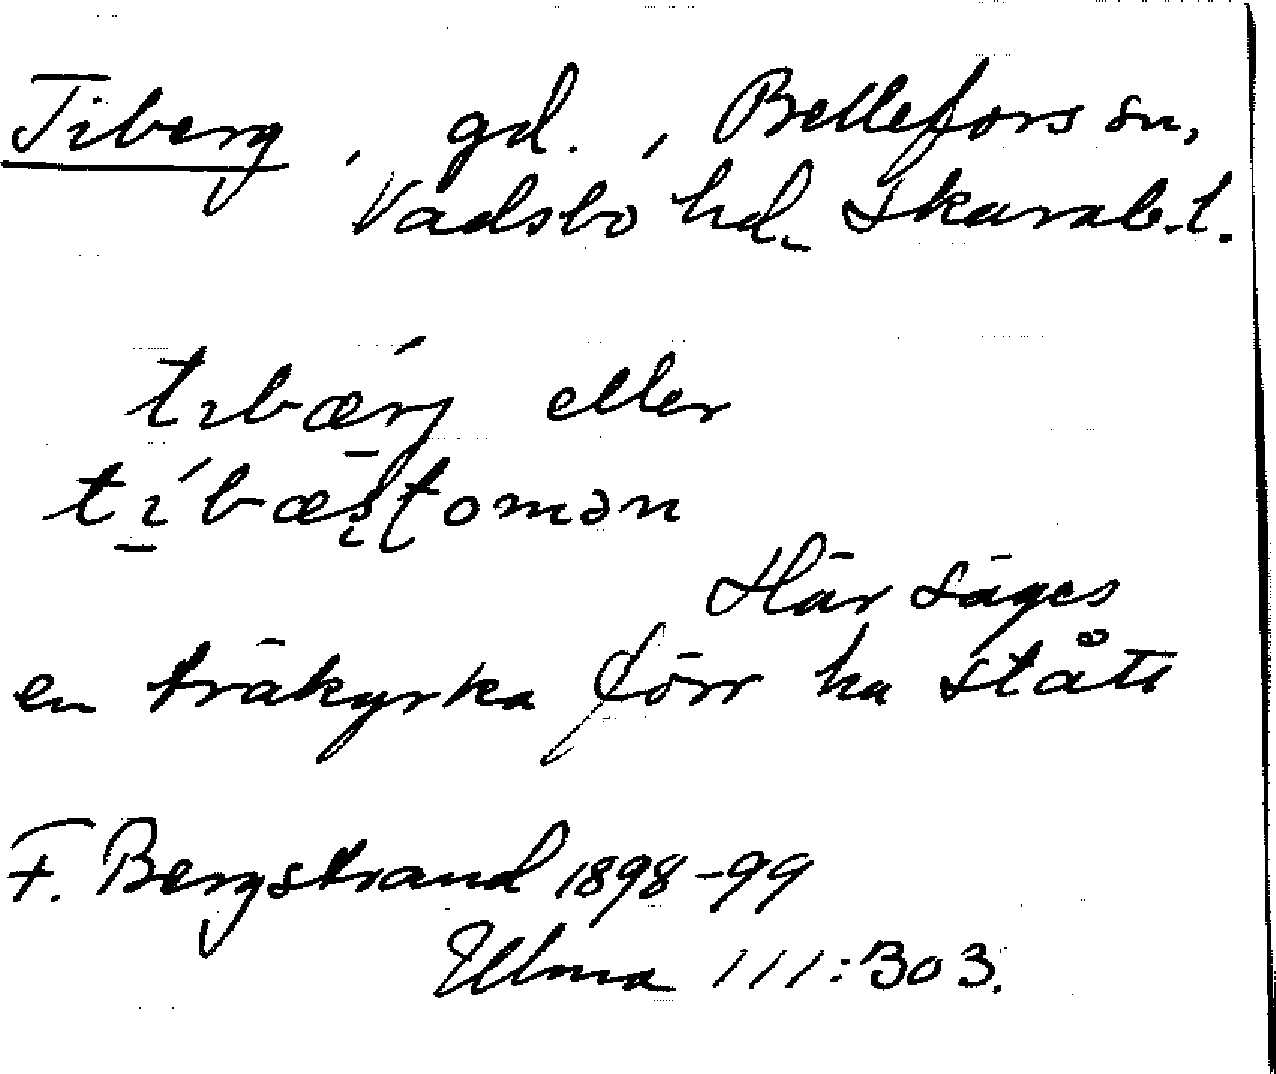 Tiberg, gd., Bellefors sn,
Vadsbo hd. Skarab. l.
tıbǽrj eller
tı́bæştomən
Här säges
en träkyrka förr ha stått
F. Bergstrand 1898-99
Ulma 111:303.